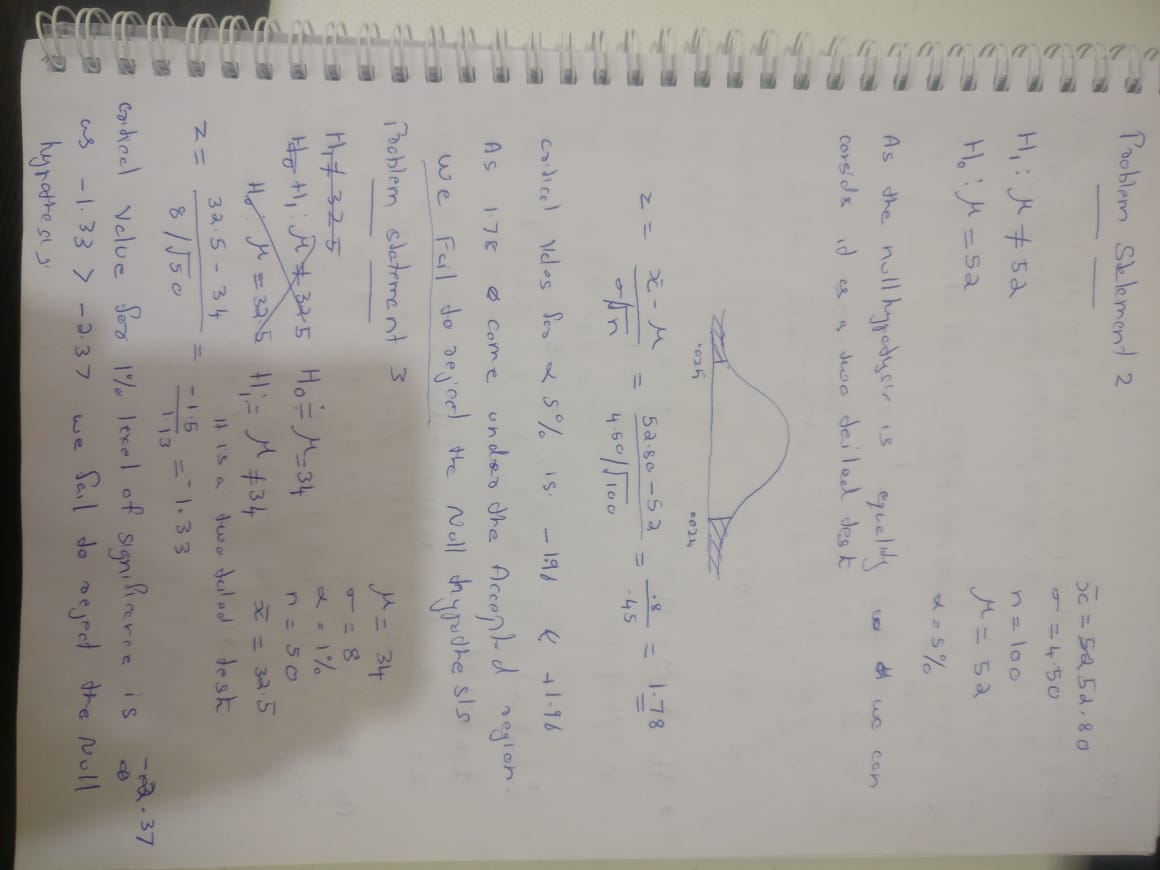 Problem Statement 2
x̄ = 5252.80
σ = 4.50
n = 100
μ = 52
α = 5%
H₁ : μ ≠ 52
H₀ : μ = 52
As the null hypotysis is equality we can
consider it as a two tailed test
.025 .0025
z = (x̄ - μ) / (σ/√n) = (52.80 - 52) / (4.50/√100) = .8 / .45 = 1.78
critical vales for α 5% is - 1.96 & +1.96
As 1.78 come under the Accepted region.
we Fail to reject the Null hypothesis
Problem statement 3
μ = 34
σ = 8
α = 1%
n = 50
x̄ = 32.5
H₁ ≠ 32.5
H₀ H₁ : μ ≠ 32.5 H₀ : = μ = 34
H₀ : μ = 32.5 H₁ : = μ ≠ 34
It is a two tailed test
z = (32.5 - 34) / (8/√50) = -1.5 / 1.13 = -1.33
critical value for 1% level of significance is -2.37
as -1.33 > -2.37 we fail to reject the Null
hypothesis